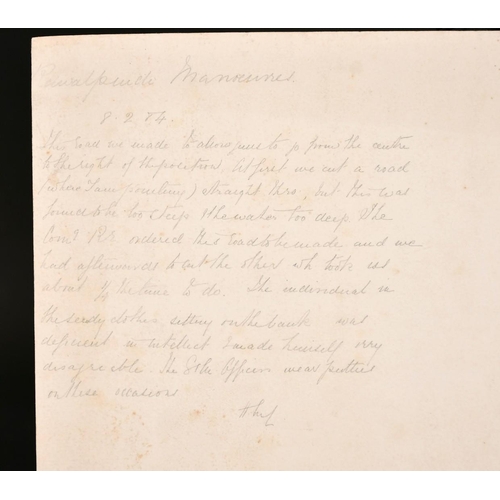 Manoeuvres
8.2.84.
This road we made to allow guns to go from the centre
to the right of the position. At first we cut a road
(where I am pointing) straight thro, but this was
found to be too steep & the water too deep. The
Com.g R.E. ordered this road to be made and we
had afterwards to cut the other wh. took us
about ¼ the time to do. The individual in
the seedy clothes sitting on the bank was
deficient in intellect & made himself very
disagreeable. The Officers wear putties
on these occasions